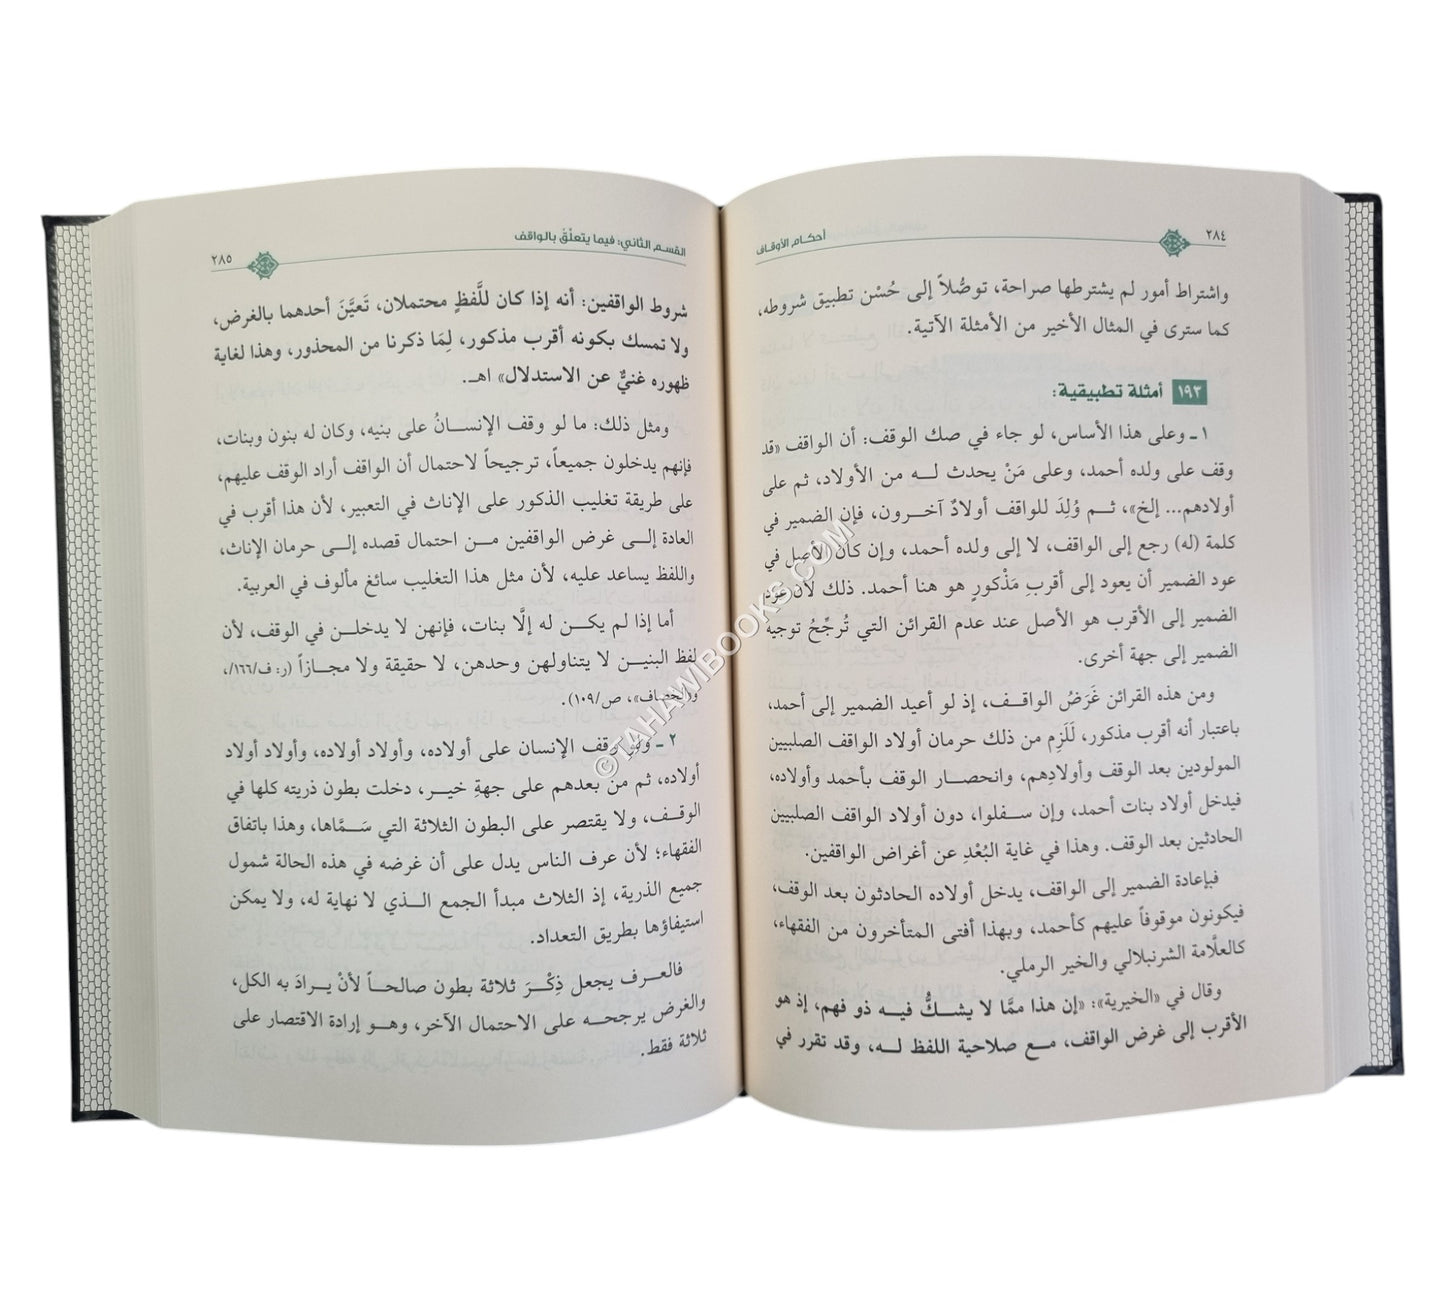 ٢٨٤
أحكام الأوقاف
واشتراط أمور لم يشترطها صراحة، توصُّلاً إلى حُسْن تطبيق شروطه،
كما سترى في المثال الأخير من الأمثلة الآتية.
١٩٣ أمثلة تطبيقية:
١ ـ وعلى هذا الأساس، لو جاء في صك الوقف: أن الواقف «قد
وقف على ولده أحمد، وعلى مَنْ يحدث لـه من الأولاد، ثم على
أولادهم... إلخ»، ثـم وُلِدَ للواقف أولادٌ آخـرون، فإن الضمير في
كلمة (له) رجع إلى الواقف، لا إلى ولده أحمد، وإن كان الأصل في
عود الضمير أن يعود إلى أقربِ مَذْكورٍ هو هنا أحمد. ذلك لأن عَوْد
الضمير إلى الأقرب هو الأصل عند عدم القرائن التي تُرجِّحُ توجيه
الضمير إلى جهة أخرى.
ومن هذه القرائن غَرَضُ الواقـف، إذ لو أعيد الضمير إلى أحمد،
باعتبار أنه أقرب مذكور، لَلَزِم من ذلك حرمان أولاد الواقف الصلبيين
المولودين بعد الوقف وأولادِهم، وانحصـار الوقف بأحمد وأولاده،
فيدخل أولاد بنات أحمد، وإن سـفلوا، دون أولاد الواقف الصلبيين
الحادثين بعد الوقف. وهذا في غاية البُعْدِ عن أغراض الواقفين.
فبإعادة الضمير إلى الواقف، يدخل أولاده الحادثون بعد الوقف،
فيكونون موقوفاً عليهم كأحمد، وبهذا أفتى المتأخرون من الفقهاء،
كالعلَّامة الشرنبلالي والخير الرملي.
وقال في «الخيرية»: «إن هذا ممَّا لا يشـكُّ فيـه ذو فهم، إذ هو
الأقرب إلى غرض الواقف، مـع صلاحية اللفظ لـه، وقد تقرر في
القسـم الثاني: فيما يتعلّقُ بالواقف
٢٨٥
شروط الواقفين: أنه إذا كان للَّفظٍ محتملان، تَعيَّنَ أحدهما بالغرض،
ولا تمسك بكونه أقرب مذكور، لِمَا ذكرنا من المحذور، وهذا لغاية
ظهوره غنيٌّ عن الاستدلال» اهـ.
ومثل ذلك: ما لو وقف الإنسـانُ على بنيه، وكان له بنون وبنات،
فإنهم يدخلون جميعاً، ترجيحاً لاحتمال أن الواقف أراد الوقف عليهم،
على طريقة تغليب الذكور على الإناث في التعبير، لأن هذا أقرب في
العادة إلـى غرض الواقفين مـن احتمال قصده إلـى حرمان الإناث،
واللفظ يساعد عليه، لأن مثل هذا التغليب سائغ مألوف في العربية.
أما إذا لم يكـن له إلَّا بنات، فإنهن لا يدخلـن في الوقف، لأن
لفظ البنيـن لا يتناولهن وحدهن، لا حقيقة ولا مجـازاً (ر: ف/١٦٦/،
و«الخصاف»، ص/١٠٩).
٢ ـ ولو وقف الإنسان على أولاده، وأولاد أولاده، وأولاد أولاد
أولاده، ثم من بعدهم على جهةِ خيـر، دخلت بطون ذريته كلها في
الوقـف، ولا يقتصر على البطون الثلاثة التي سَـمَّاها، وهذا باتفاق
الفقهاء؛ لأن عرف الناس يدل على أن غرضه في هذه الحالة شمول
جميع الذرية، إذ الثلاث مبدأ الجمع الـذي لا نهاية له، ولا يمكن
استيفاؤها بطريق التعداد.
فالعـرف يجعل ذِكْـرَ ثلاثة بطون صالحـاً لأنْ يـرادَ به الكل،
والغرض يرجحـه على الاحتمال الآخر، وهـو إرادة الاقتصار على
ثلاثة فقط.
©TAHAWIBOOKS.COM